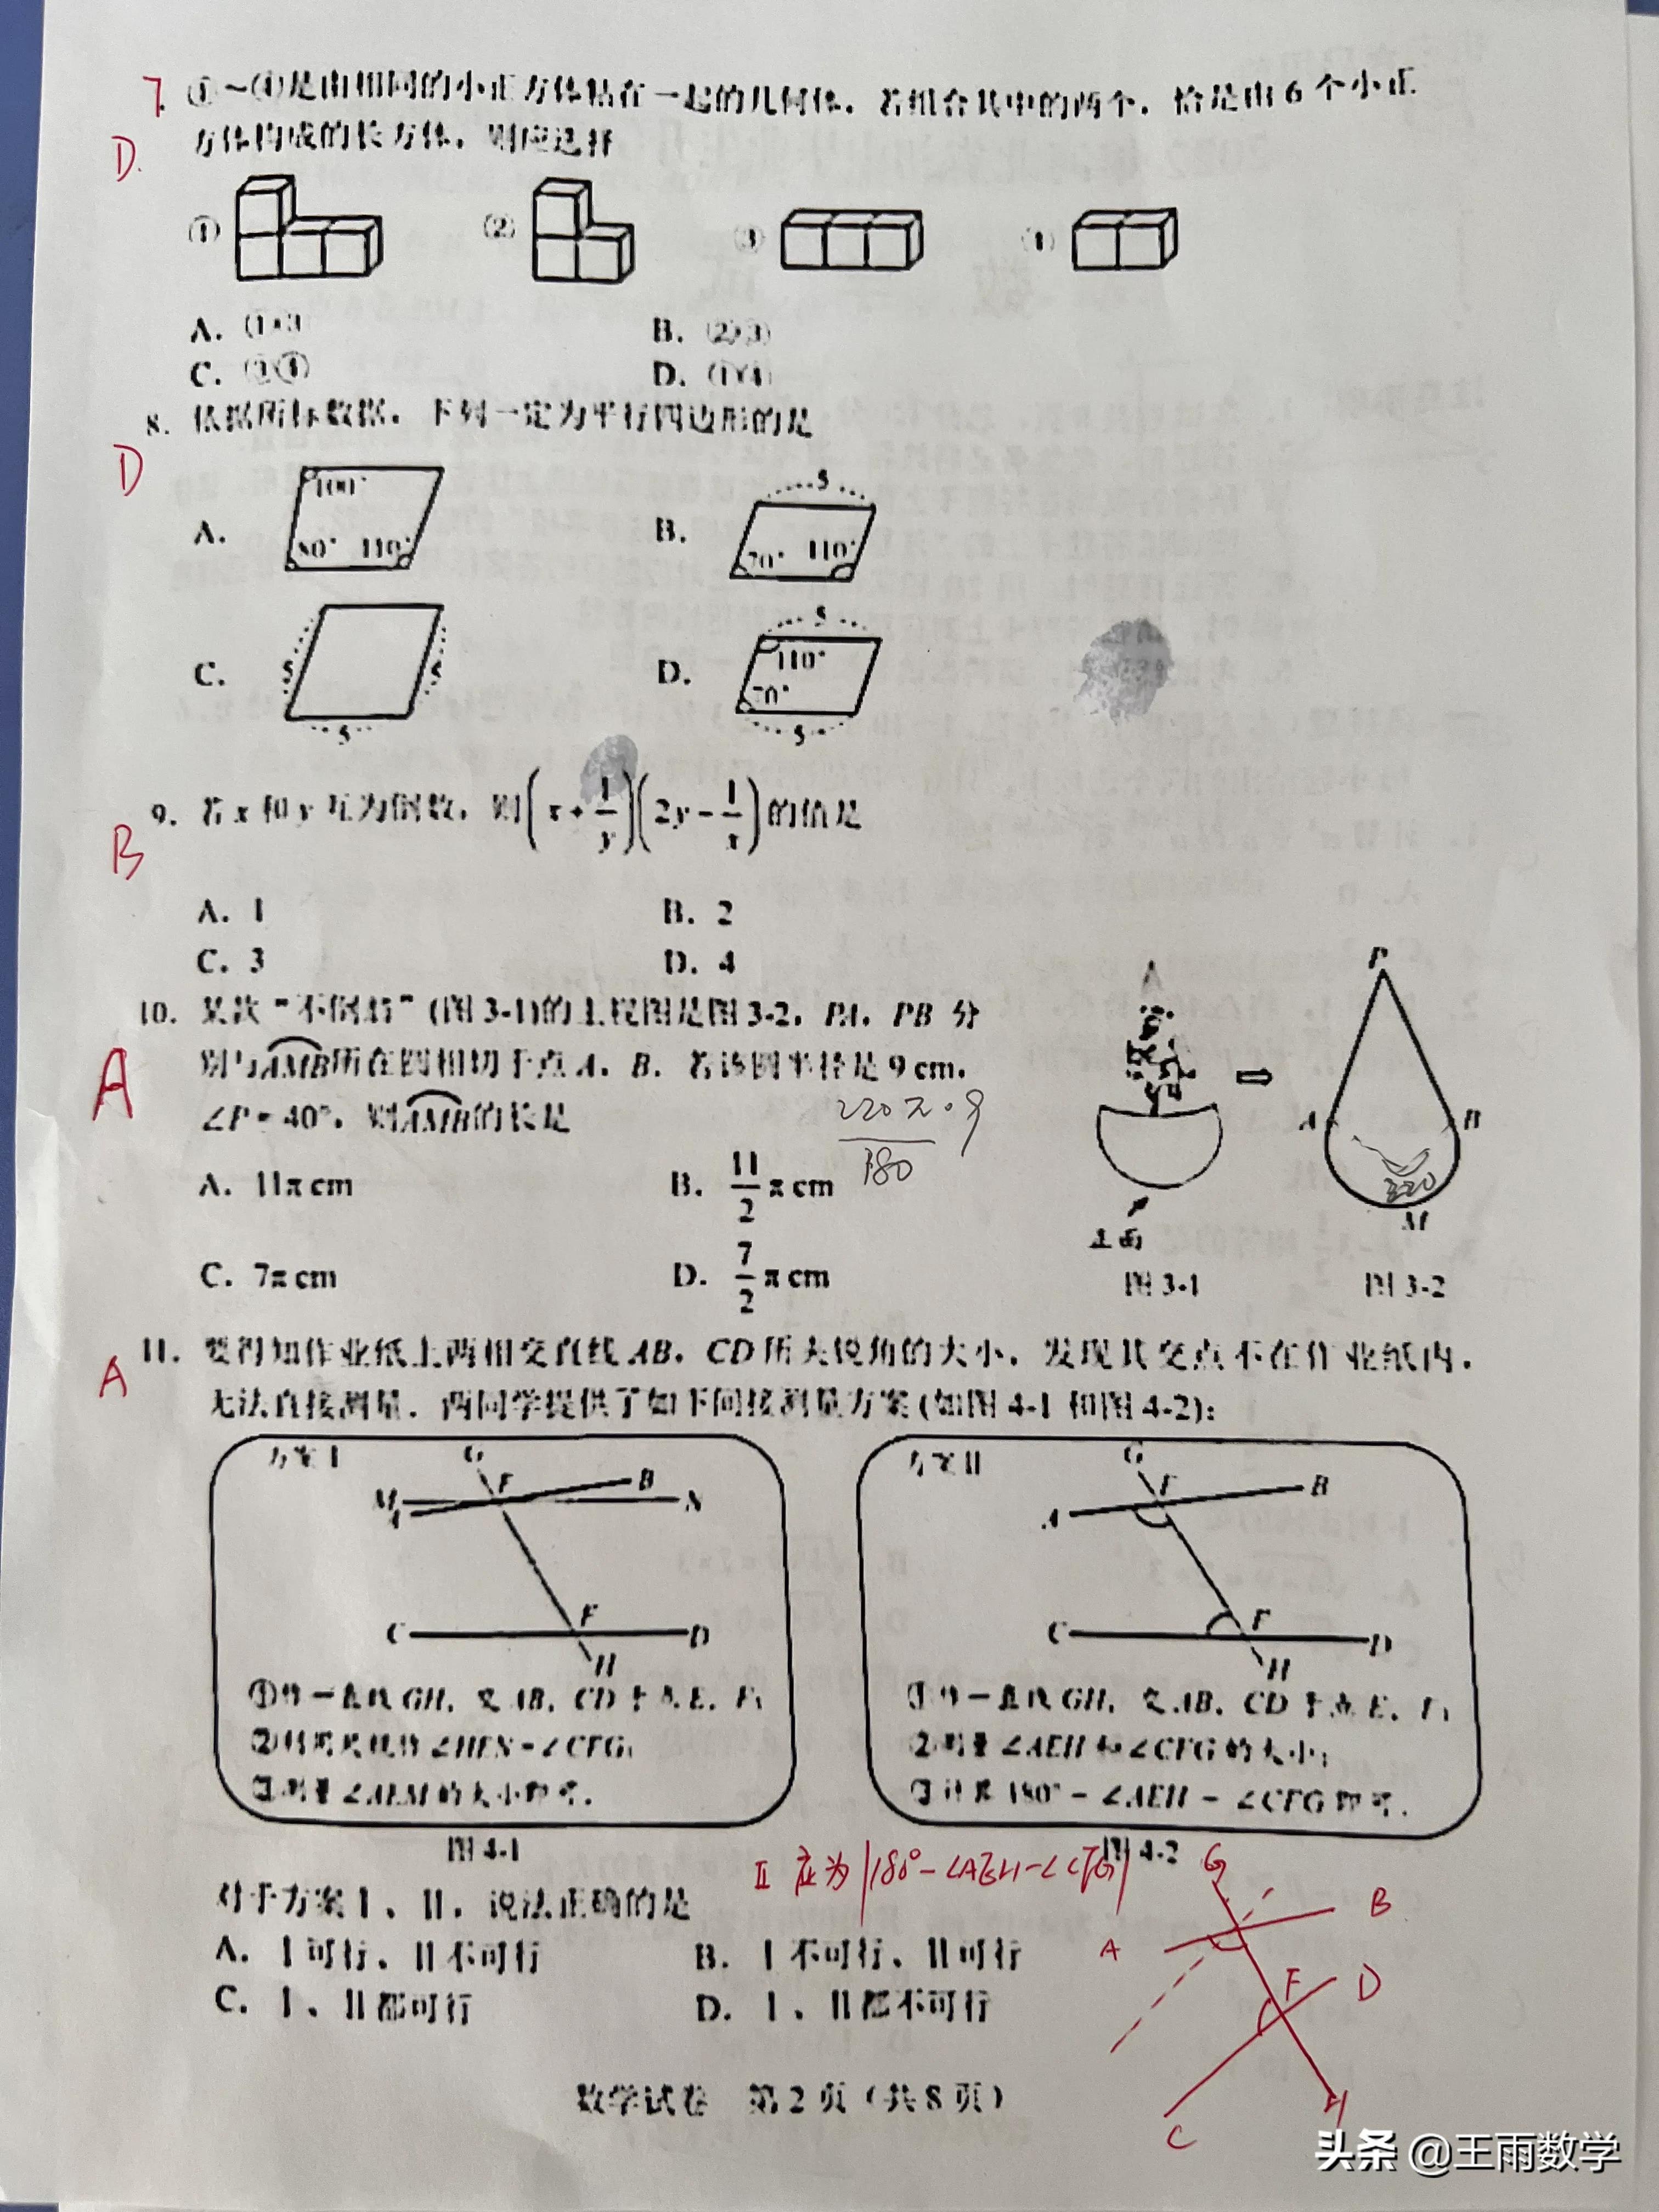 7. ①~④是由相同的小正方体粘在一起的几何体，若组合其中的两个，恰是由6个小正
方体构成的长方体，则应选择
D.
① ② ③ ④
A. ①③ B. ②③
C. ③④ D. ①④
8. 依据所标数据，下列一定为平行四边形的是
D
A. 100° 80° 110°
B. 5 70° 110°
C. 5 5 5
D. 5 110° 70° 5
9. 若x和y互为倒数，则(x+1/y)(2y-1/x)的值是
B
A. 1 B. 2
C. 3 D. 4
10. 某款“不倒翁”(图3-1)的主视图是图3-2，PA，PB分
别与AMB所在圆相切于点A，B．若该圆半径是9 cm，
∠P=40°，则AMB的长是
A
220π·9
180
A. 11π cm B. 11/2 π cm
C. 7π cm D. 7/2 π cm
P
A B
220
M
主面
图3-1 图3-2
11. 要得知作业纸上两相交直线AB，CD所夹锐角的大小，发现其交点不在作业纸内，
无法直接测量．两同学提供了如下间接测量方案(如图4-1和图4-2)：
A
方案Ⅰ
G
E B
M N
A
C F D
H
①作一直线GH，交AB，CD于点E，F；
②利用尺规作∠HEN=∠CFG；
③测量∠AEM的大小即可．
图4-1
方案Ⅱ
G
E B
A
C F D
H
①作一直线GH，交AB，CD于点E，F；
②测量∠AEH和∠CFG的大小；
③计算180°-∠AEH-∠CFG即可．
图4-2
Ⅱ 应为|180°-∠AEH-∠CFG|
对于方案Ⅰ、Ⅱ，说法正确的是
A. Ⅰ可行、Ⅱ不可行 B. Ⅰ不可行、Ⅱ可行
C. Ⅰ、Ⅱ都可行 D. Ⅰ、Ⅱ都不可行
G
B
A
F D
C H
数学试卷 第2页（共8页）
头条 @王雨数学